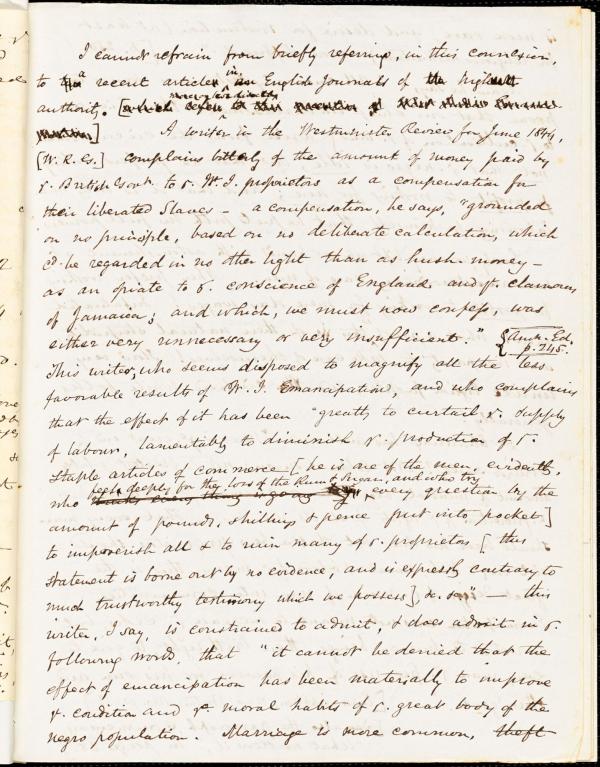 I cannot refrain from briefly referring, in this connexion,
to a recent article in an English Journal of the highest
authority.
A writer in the Westminster Review for June 1844,
[W. R. Es.] complains bitterly of the amount of money paid by
y. British Govt. to y. W. I. proprietors as a compensation for
their liberated Slaves - a compensation, he says, "grounded
on no principle, based on no deliberate calculation, which
cd. be regarded in no other light than as hush-money -
as an opiate to y. conscience of England and y. clamours
of Jamaica; and which, we must now confess, was
either very unnecessary or very insufficient." {Amer. Ed.
p. 245.
This writer, who seems disposed to magnify all the less
favorable results of W. I. Emancipation, and who complains
that the effect of it has been "greatly to curtail y. supply
of labour, lamentably to diminish y. production of y.
staple articles of commerce [he is one of the men, evidently,
who feel deeply for the loss of the Rum & Sugar, and who try
every question by the
amount of pounds, shillings & pence put into pocket]
to impoverish all & to ruin many of y. proprietors [this
statement is borne out by no evidence, and is expressly contrary to
much trustworthy testimony which we possess] &c. &c." - this
writer, I say, is constrained to admit, & does admit in y.
following words, that "it cannot be denied that the
effect of emancipation has been materially to improve
y. condition and ye moral habits of y. great body of the
negro population. Marriage is more common, theft